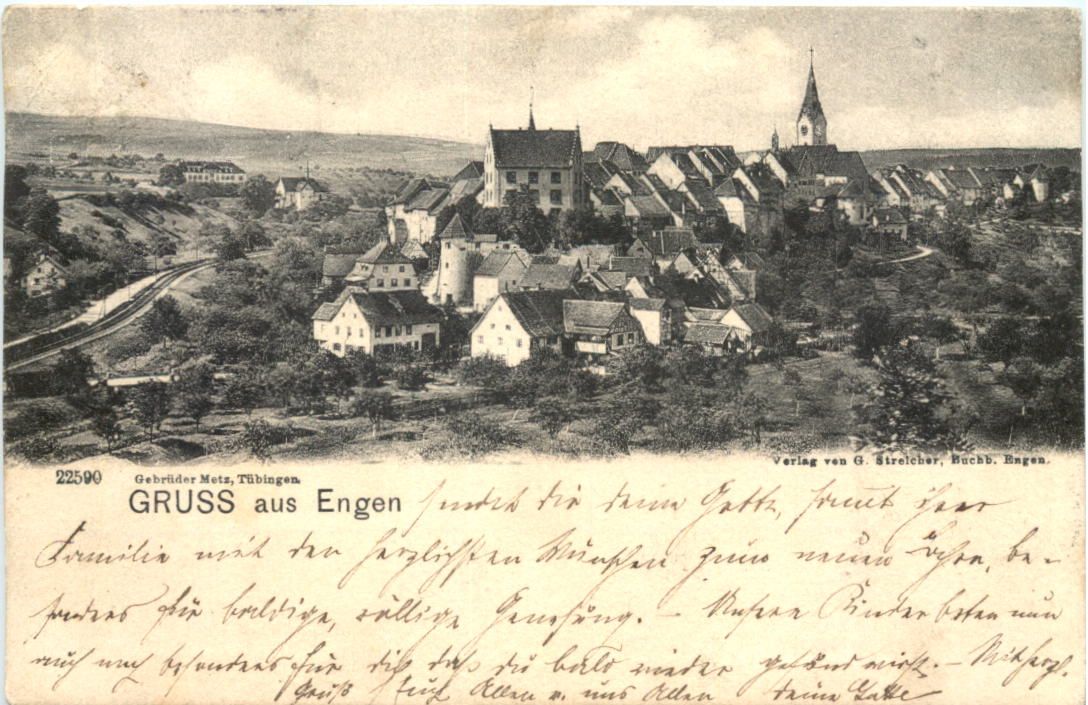 22590
Gebrüder Metz, Tübingen.
Verlag von G. Streicher, Buchb. Engen.
GRUSS aus Engen sendet dir deine Gotte, samt ihrer
Familie mit den herzlichsten Wünschen zum neuen Jahre, be-
sonders für baldige, völlige Genesung. – Unsere Kinder beten nun
auch noch besonders für dich daß du bald wieder gesund wirst. – Mit herzl.
Gruß Euch Allen v. uns Allen deine Gotte